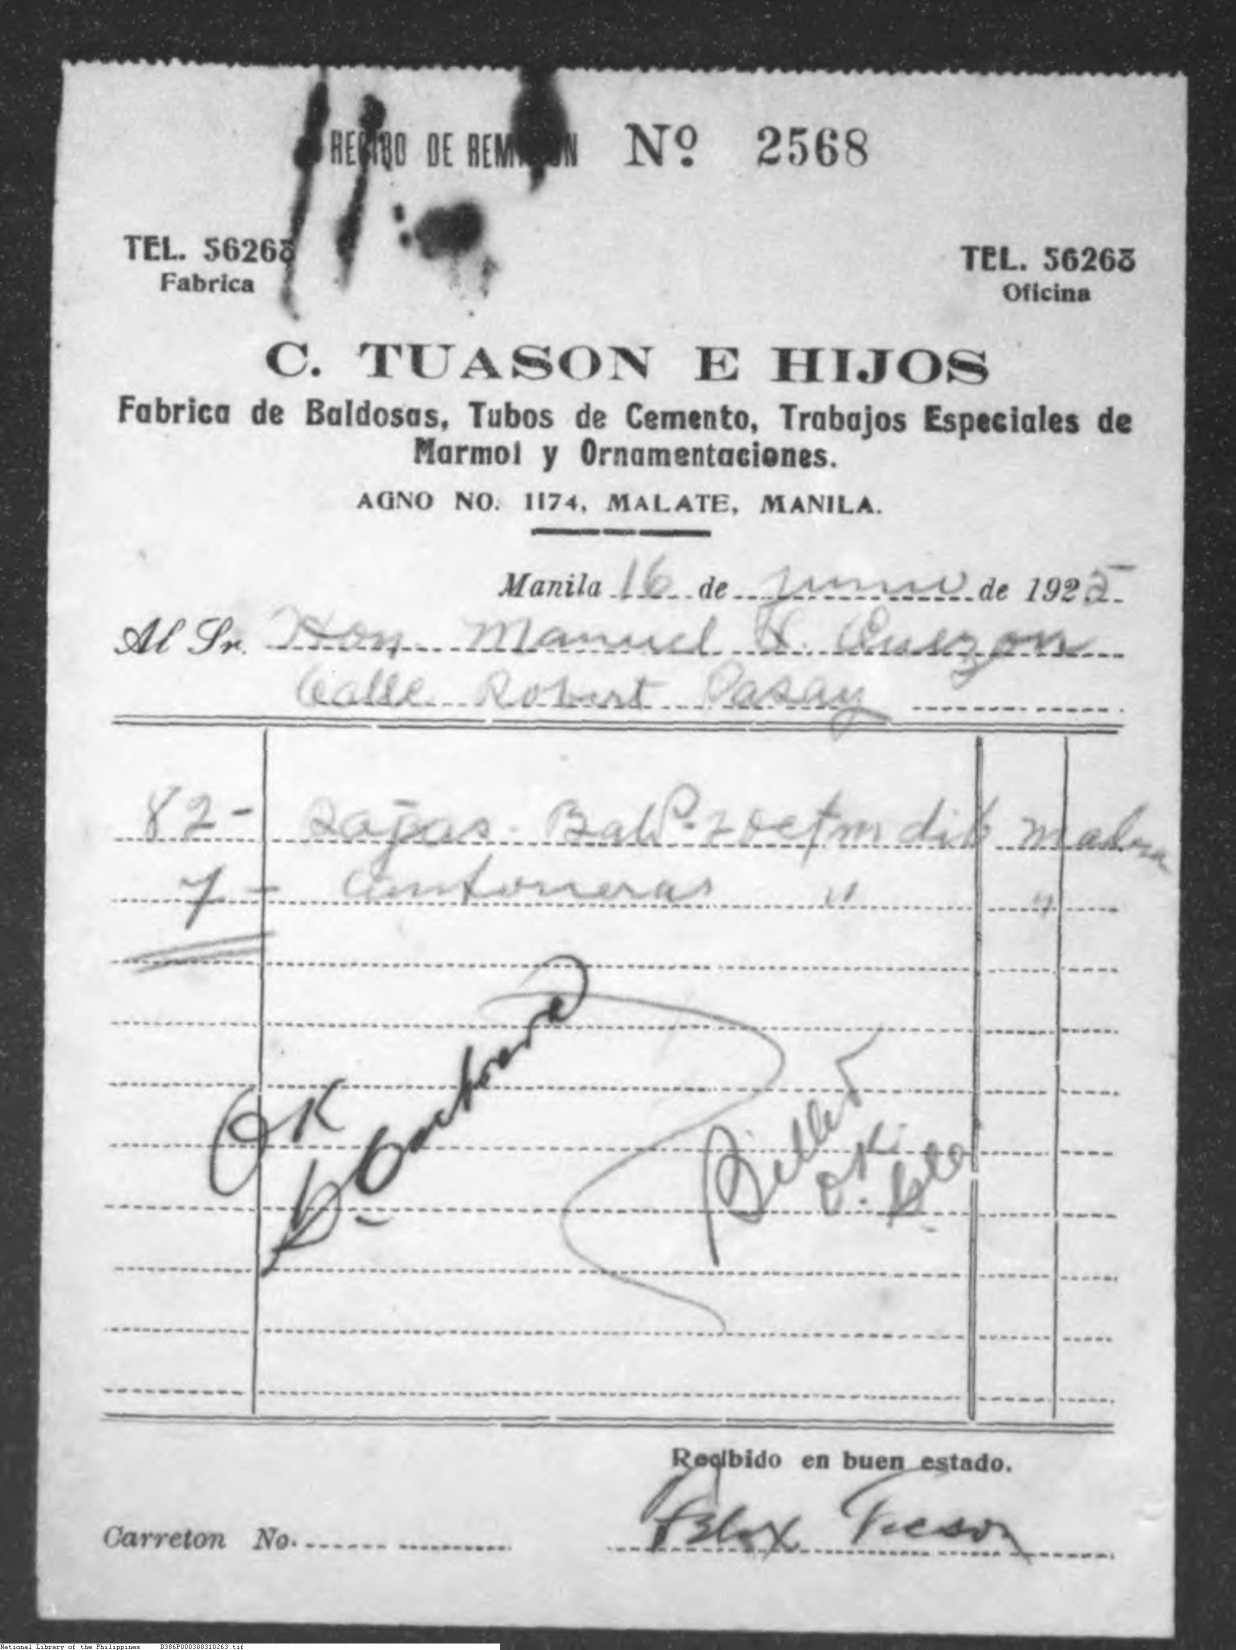 RECIBO DE REMISION Nº 2568
TEL. 56263 TEL. 56263
Fabrica Oficina
C. TUASON E HIJOS
Fabrica de Baldosas, Tubos de Cemento, Trabajos Especiales de
Marmol y Ornamentaciones.
AGNO NO. 1174, MALATE, MANILA.
Manila 16 de junio de 1925
Al Sr. Hon. Manuel Quezon
Calle Robert Pasay
82 - 20 c/m dib
7 - Cantoneras " "
OK
Billed
O.K.
Recibido en buen estado.
Felix Tecson
Carreton No.
National Library of the Philippines D386P000300310263.tif